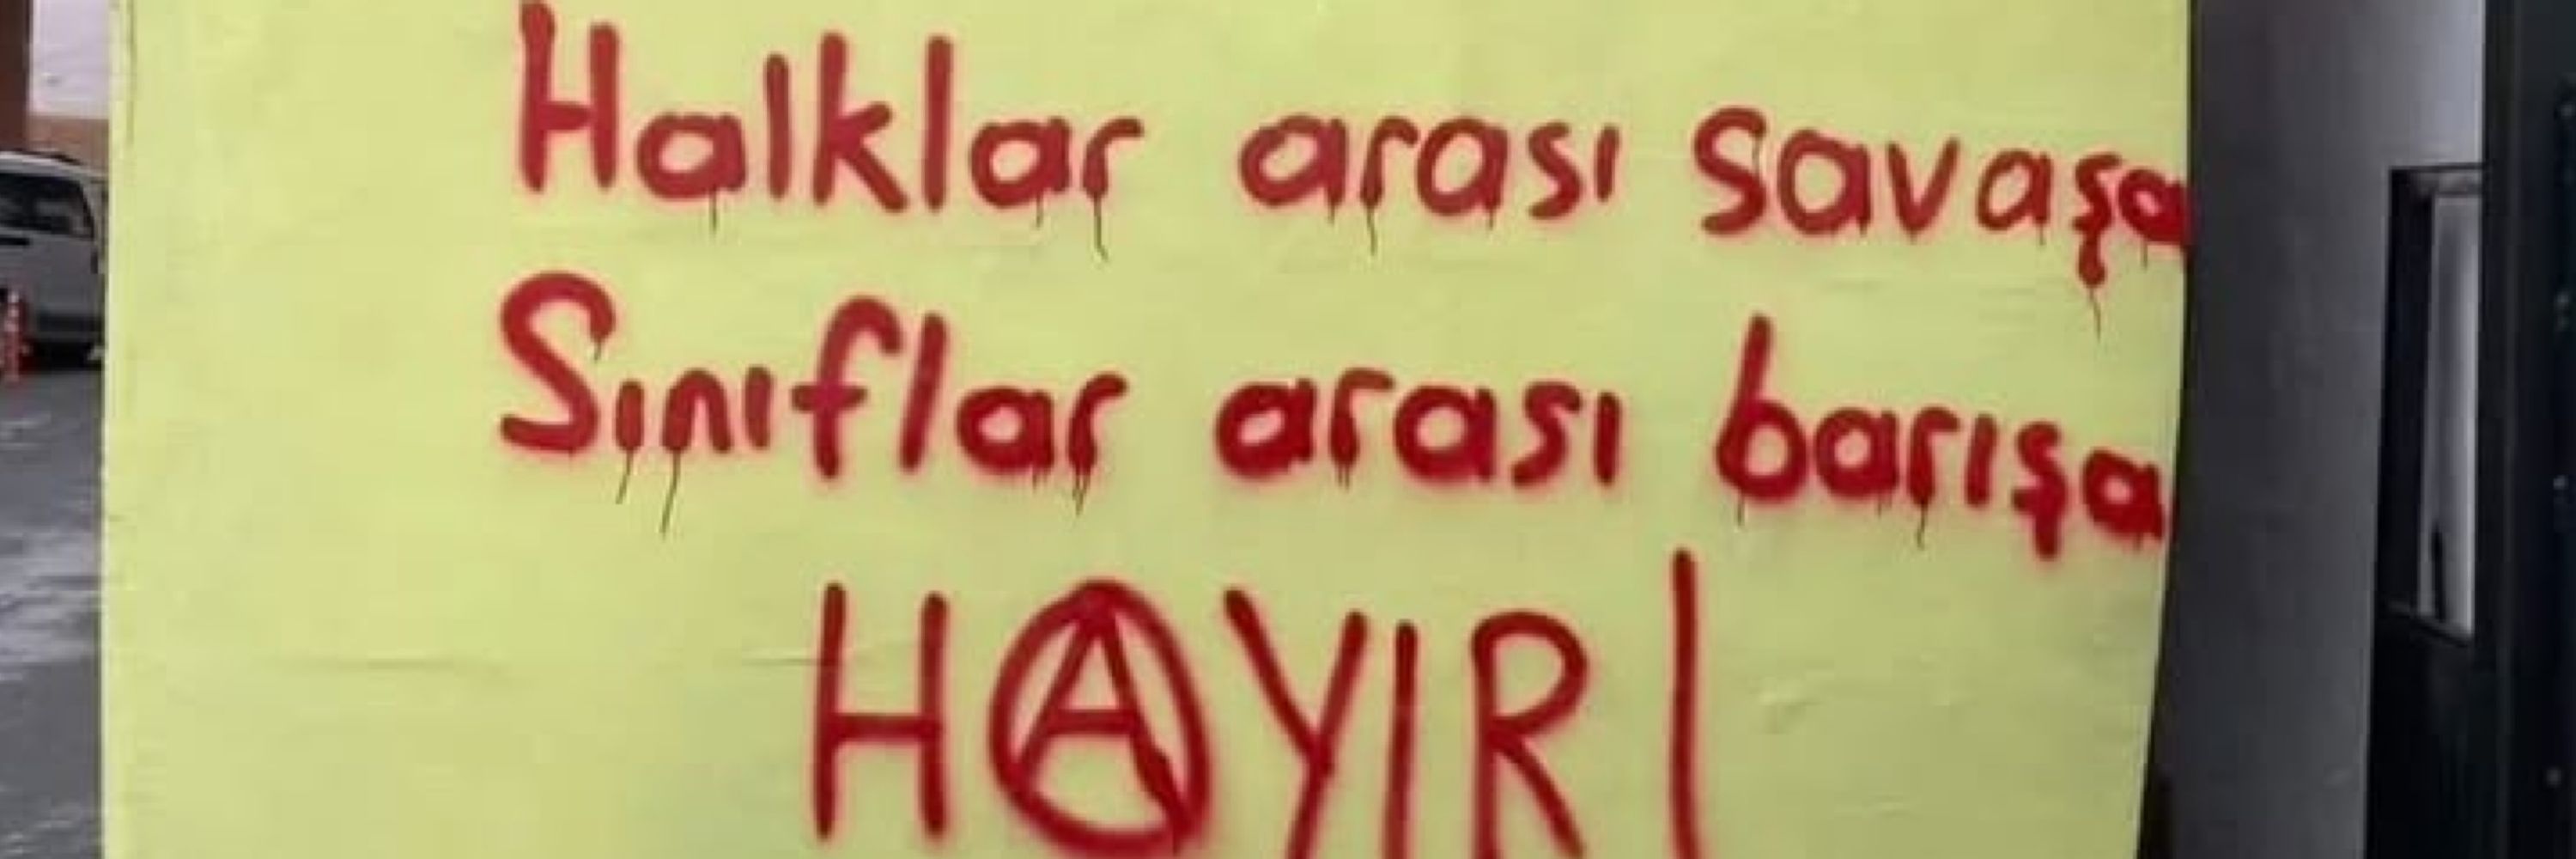 Halklar arası savaşa
Sınıflar arası barışa
HAYIR!